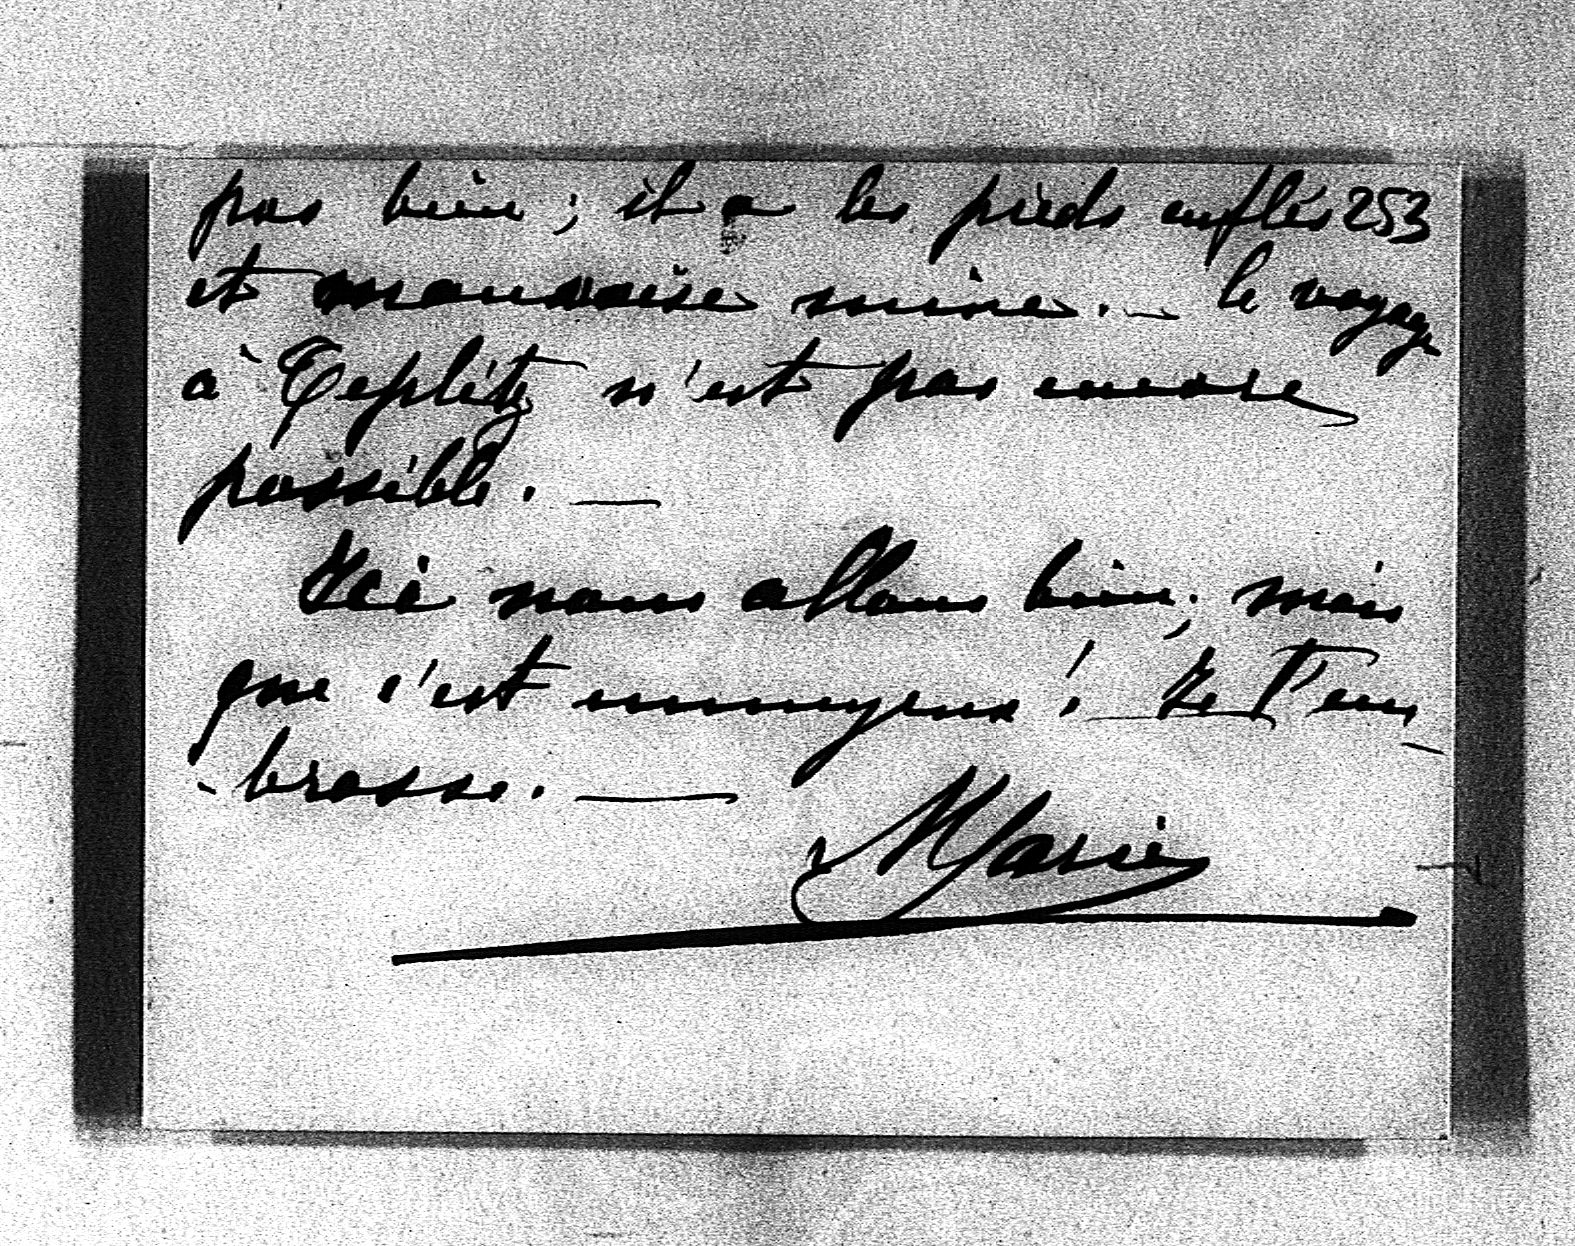 pas bien ; il a les pieds enflés 253
et mauvaise mine. — le voyage
à Teplitz n'est pas encore
possible. —
Ici nous allons bien ; mais
que c'est ennuyeux ! — Je t'em-
-brasse. —
Marie